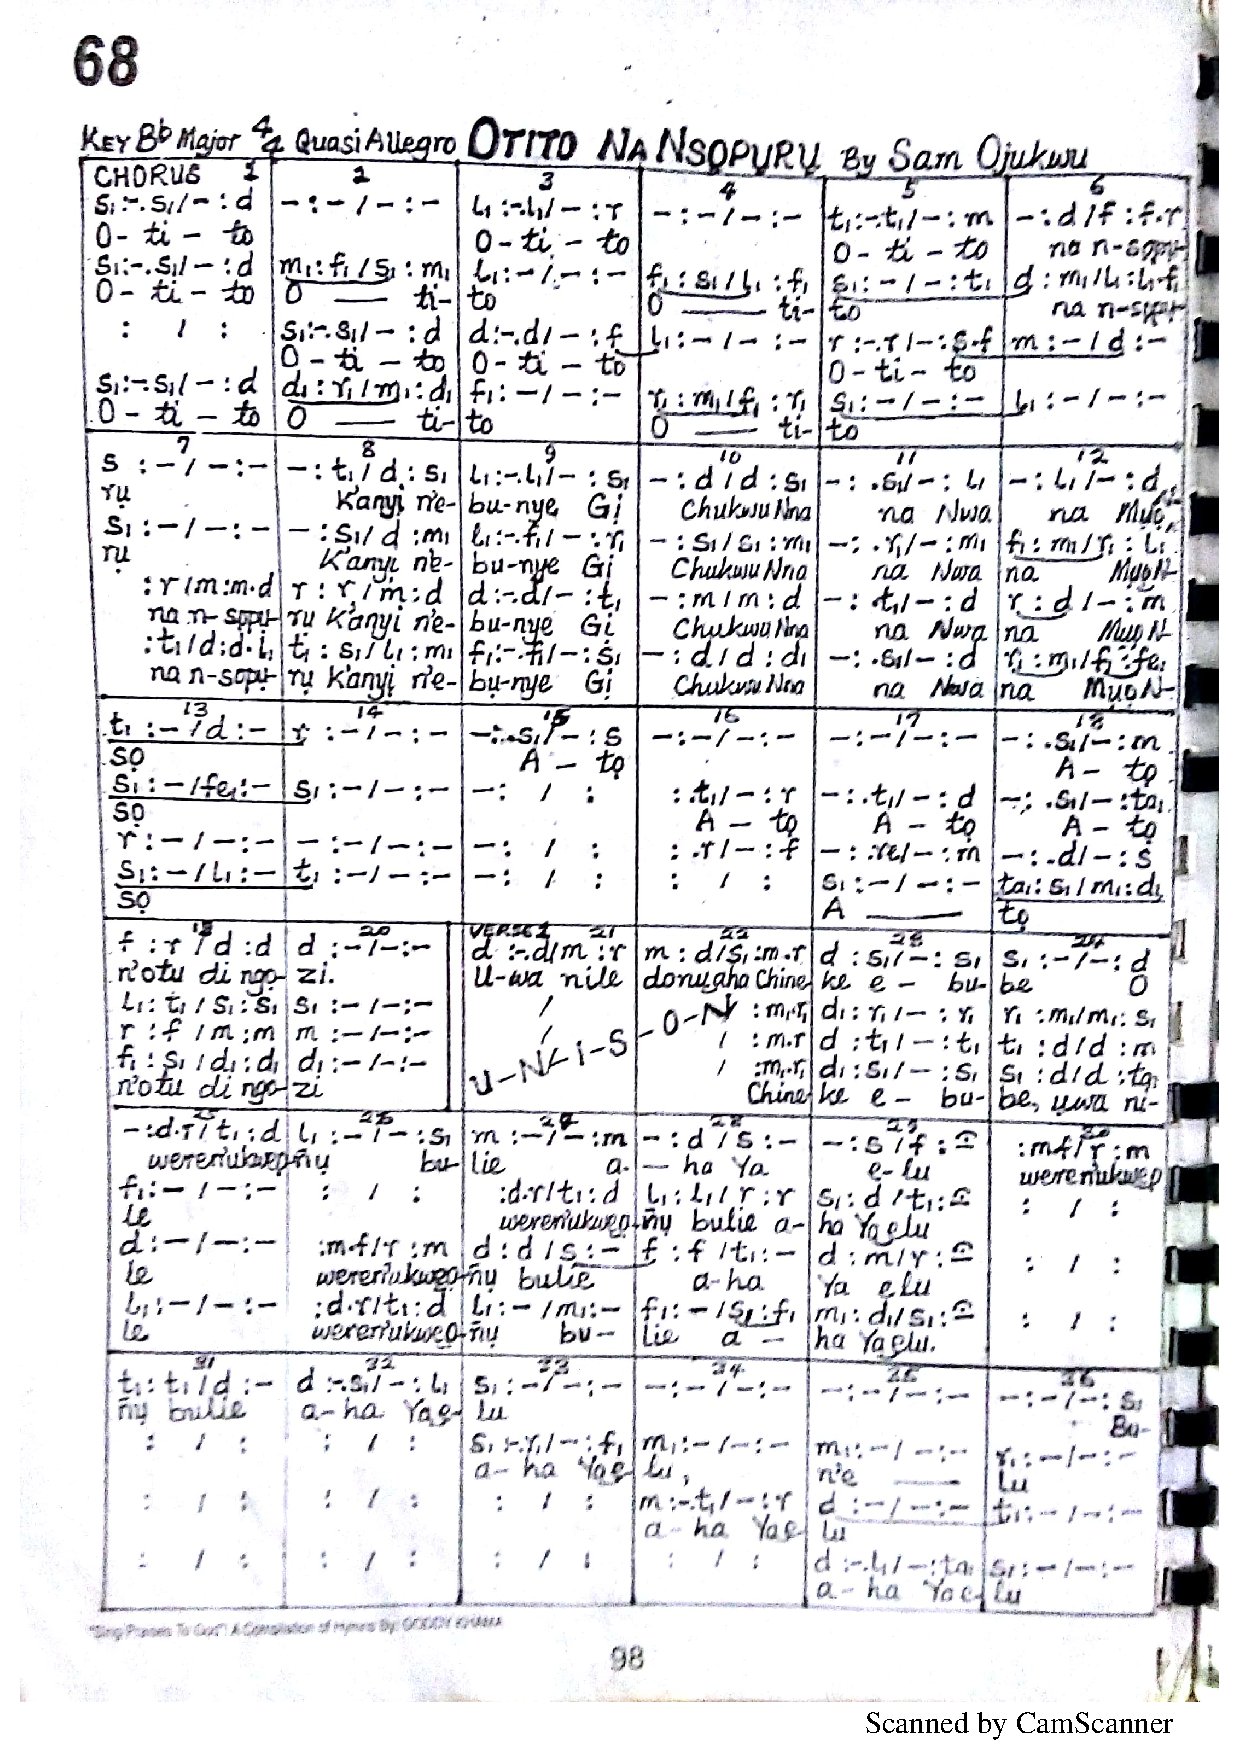 68
KEY Bb Major 4/4 Quasi Allegro OTITO NA NSỌPURU By Sam Ojukwu
CHORUS 1 2 3 4 5 6
s₁:-.s₁/-:d -:-/-:- l₁:-.l₁/-:r -:-/-:- t₁:-.t₁/-:m -:d/f:f.r
O-ti-to O-ti-to O-ti-to na n-sọpụ-
s₁:-.s₁/-:d m₁:f₁/s₁:m₁ l₁:-/-:- f₁:s₁/l₁:f₁ s₁:-/-:t₁ d:m₁/l₁:l₁.f₁
O-ti-to O ti- to O ti- to na n-sọpụ-
: / : s₁:-.s₁/-:d d:-.d/-:f l₁:-/-:- r:-.r/-:s.f m:-/d:-
O-ti-to O-ti-to O-ti-to
s₁:-.s₁/-:d d₁:r₁/m₁:d₁ f₁:-/-:- r₁:m₁/f₁:r₁ s₁:-/-:- l₁:-/-:-
O-ti-to O ti- to O ti- to
7 8 9 10 11 12
s:-/-:- -:t₁/d:s₁ l₁:-.l₁/-:s₁ -:d/d:s₁ -:.s₁/-:l₁ -:l₁/-:d
rụ K'anyị n'e- bu-nye Gị Chukwu Nna na Nwa na Mụọ
s₁:-/-:- -:s₁/d:m₁ l₁:-.f₁/-:r₁ -:s₁/s₁:m₁ -:.r₁/-:m₁ f₁:m₁/r₁:l₁
rụ K'anyị n'e- bu-nye Gị Chukwu Nna na Nwa na MụọN-
:r/m:m.d r:r/m:d d:-.d/-:t₁ -:m/m:d -:.t₁/-:d r:d/-:m
na n-sọpụ- rụ K'anyị n'e- bu-nye Gị Chukwu Nna na Nwa na Mụọ N-
:t₁/d:d.l₁ t₁:s₁/l₁:m₁ f₁:-.f₁/-:s₁ -:d/d:d₁ -:.s₁/-:d r₁:m₁/f₁:fe₁
na n-sọpụ- rụ K'anyị n'e- bụ-nye Gị Chukwu Nna na Nwa na MụọN-
13 14 15 16 17 18
t₁:-/d:- r:-/-:- -:.s₁/-:s -:-/-:- -:-/-:- -:.s₁/-:m
sọ A-tọ A-tọ
s₁:-/fe₁:- s₁:-/-:- -: / : :.t₁/-:r -:.t₁/-:d -:.s₁/-:ta₁
sọ A-tọ A-tọ A-tọ
r:-/-:- -:-/-:- -: / : :.r/-:f -:.re/-:m -:.d/-:s
s₁:-/l₁:- t₁:-/-:- -: / : : / : s₁:-/-:- ta₁:s₁/m₁:d₁
sọ A tọ
20 VERSE 1 21 22 23 24
f:r/d:d d:-/-:- d:-.d/m:r m:d/s₁:m.r d:s₁/-:s₁ s₁:-/-:d
n'otu di ngo- zi. U-wa nile donụaha Chine ke e- bu- be O
l₁:t₁/s₁:s₁ s₁:-/-:- / :m₁.r₁ d₁:r₁/-:r₁ r₁:m₁/m₁:s₁
r:f/m:m m:-/-:- / / :m.r d:t₁/-:t₁ t₁:d/d:m
f₁:s₁/d₁:d₁ d₁:-/-:- U-N-I-S-O-N / :m₁.r₁ d₁:s₁/-:s₁ s₁:d/d:ta₁
n'otu di ngo- zi Chine ke e- bu- be, ụwa ni-
25 26 27 28 29 30
-:d.r/t₁:d l₁:-/-:s₁ m:-/-:m -:d/s:- -:s/f:- :m.f/r:m
weren'ukwep- ñụ bu- lie a- -ha Ya e-lu weren'ukwep
f₁:-/-:- : / : :d.r/t₁:d l₁:l₁/r:r s₁:d/t₁:- : / :
le weren'ukwep- ñụ bulie a- ha Yaelu
d:-/-:- :m.f/r:m d:d/s:- f:f/t₁:- d:m/r:- : / :
le weren'ukweọ- ñụ bulie a-ha Ya elu
l₁:-/-:- :d.r/t₁:d l₁:-/m₁:- f₁:-/s₁:f₁ m₁:d₁/s₁:- : / :
le weren'ukweọ- ñụ bu- lie a- ha Yaelu.
31 32 33 34 35 36
t₁:t₁/d:- d:-.s₁/-:l₁ s₁:-/-:- -:-/-:- -:-/-:- -:-/-:s₁
ñụ bulie a-ha Yae- lu Bu-
: / : : / : s₁:-.r₁/-:f₁ m₁:-/-:- m₁:-/-:- r₁:-/-:-
a-ha Yae lu, n'e lu
: / : : / : : / : m:-.t₁/-:r d:-/-:- t₁:-/-:-
a-ha Yae lu
: / : : / : : / : : / : d:-.l₁/-:ta₁ s₁:-/-:-
a-ha Yae- lu
"Sing Praises To God": A Compilation of Hymns By:
98
Scanned by CamScanner